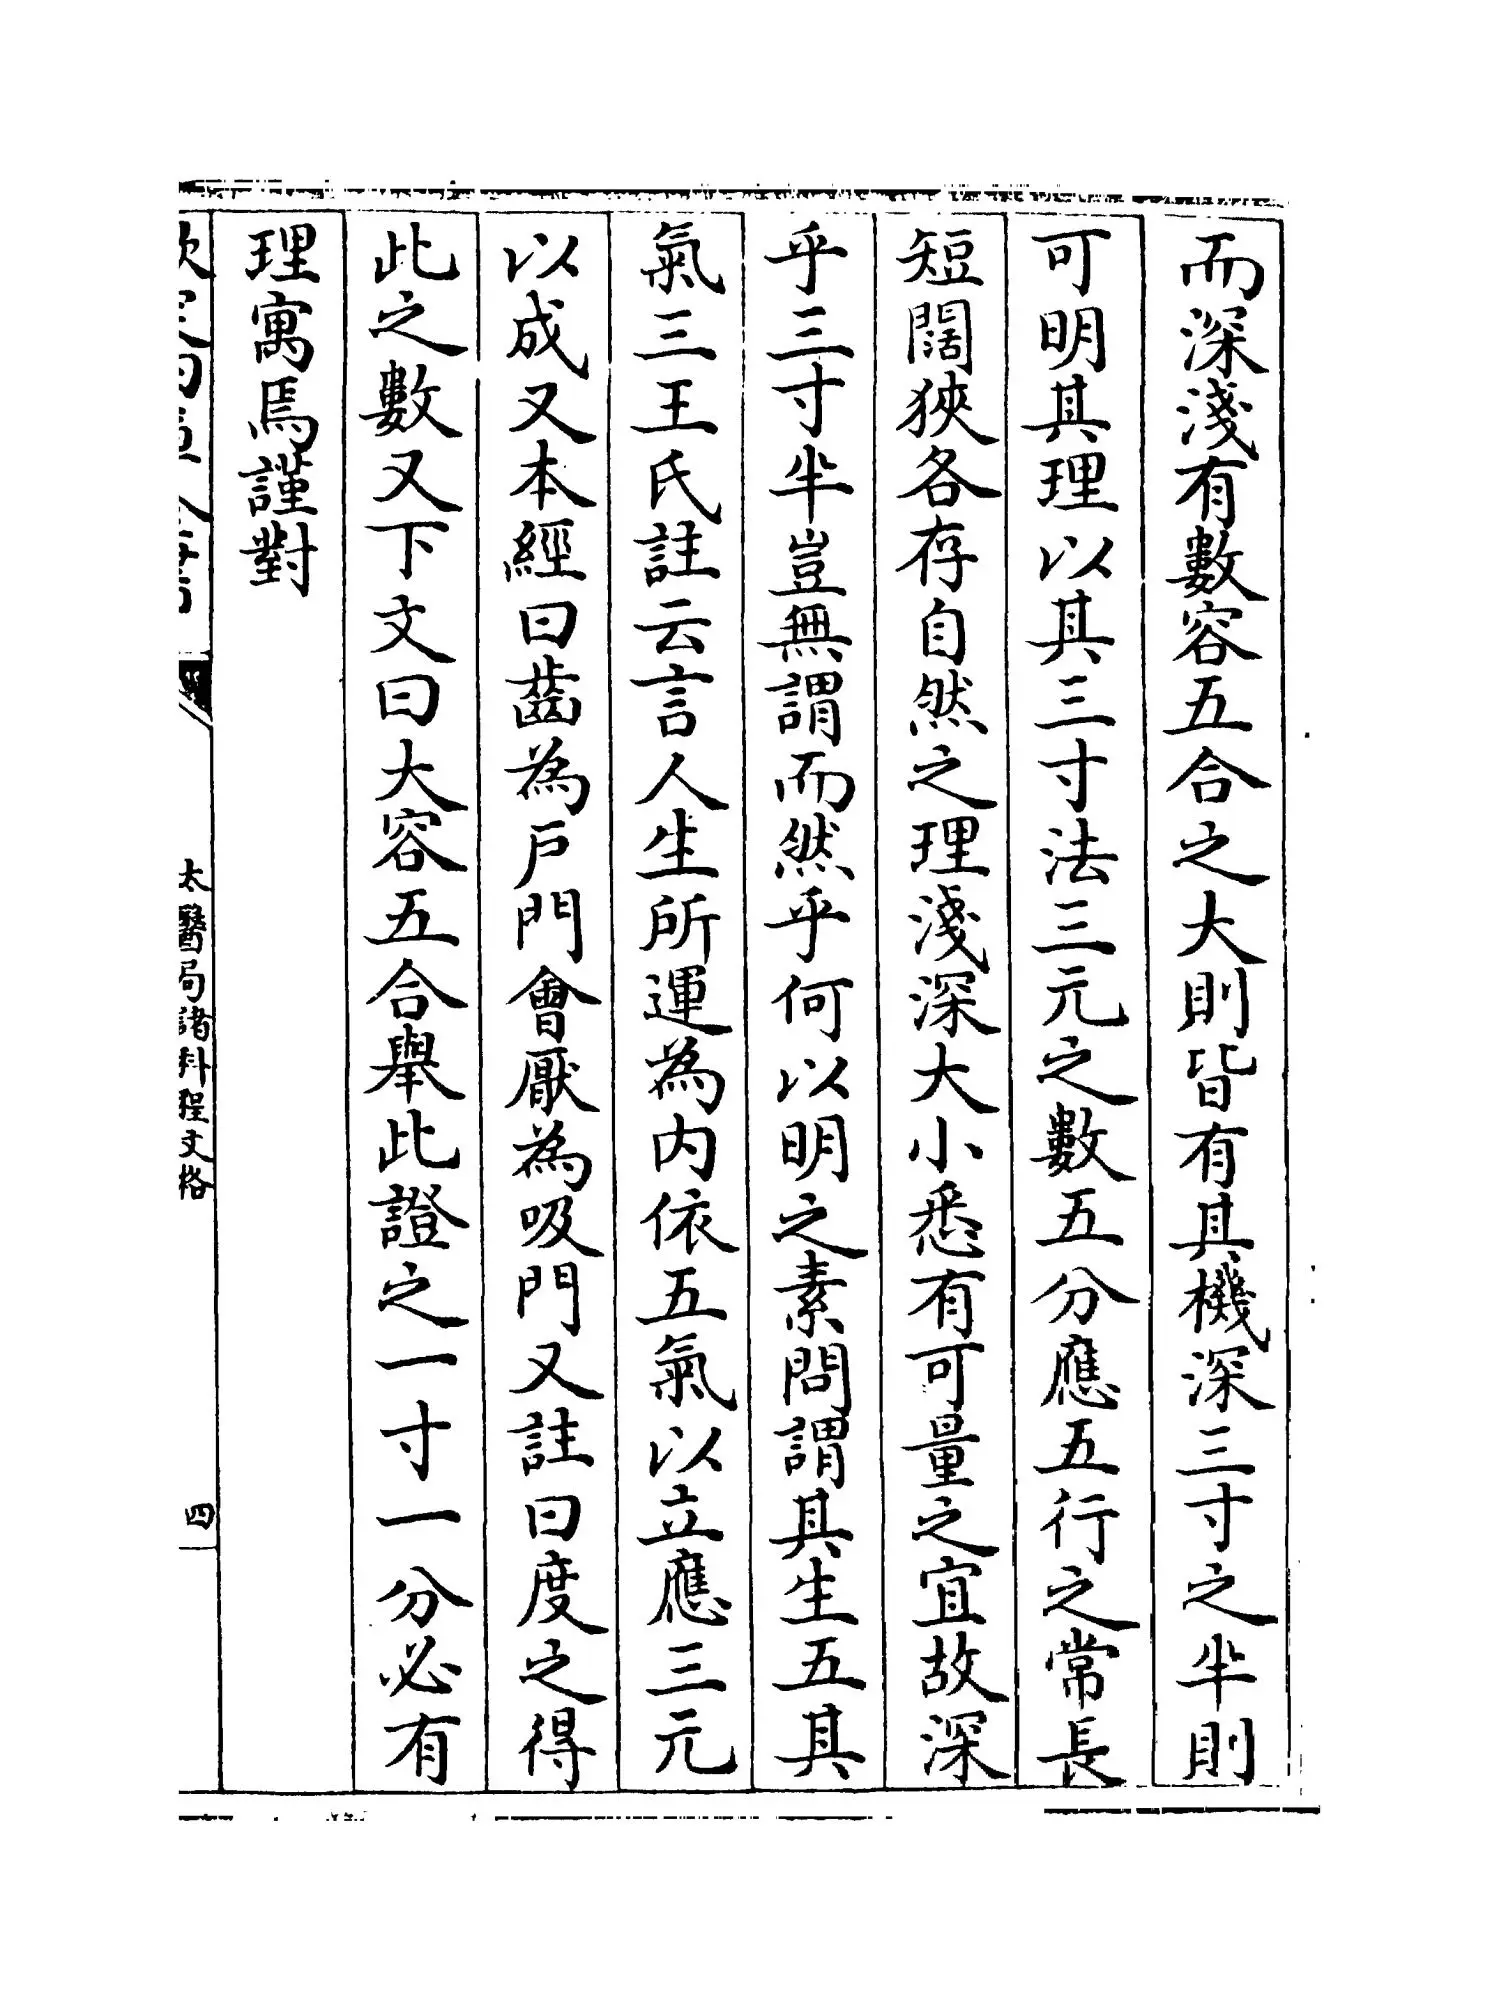 而深淺有數容五合之大則皆有其機深三寸之半則
可明其理以其三寸法三元之數五分應五行之常長
短闊狹各存自然之理淺深大小悉有可量之宜故深
乎三寸半豈無謂而然乎何以明之素問謂其生五其
氣三王氏註云言人生所運為内依五氣以立應三元
以成又本經曰齒為戶門會厭為吸門又註曰度之得
此之數又下文曰大容五合舉此證之一寸一分必有
理寓焉謹對
太醫局諸科程文格
四